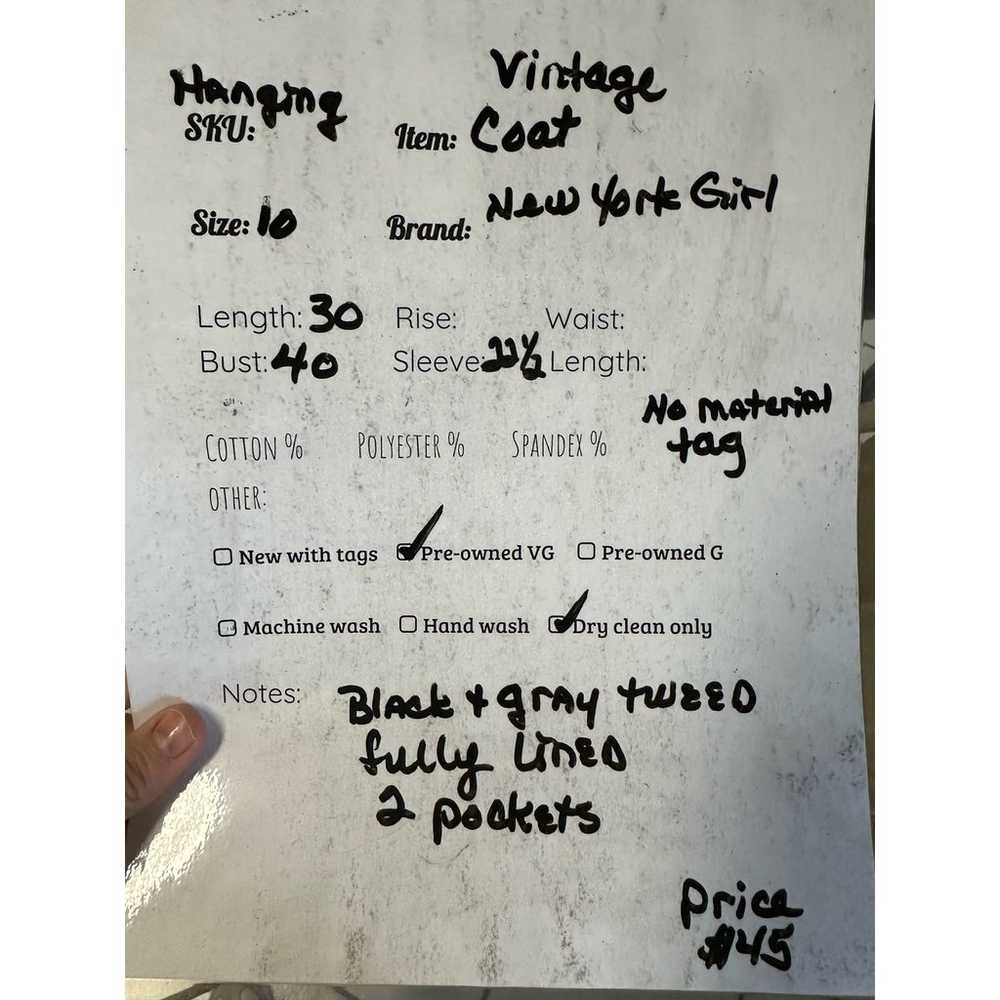 Hanging
Vintage
SKU: Item: Coat
Size: 10 Brand: New York Girl
Length: 30 Rise: Waist:
Bust: 40 Sleeve: 22½ Length:
No material
tag
COTTON % POLYESTER % SPANDEX %
OTHER:
New with tags Pre-owned VG Pre-owned G
Machine wash Hand wash Dry clean only
Notes: Black + gray tweed
fully lined
2 pockets
Price
$45